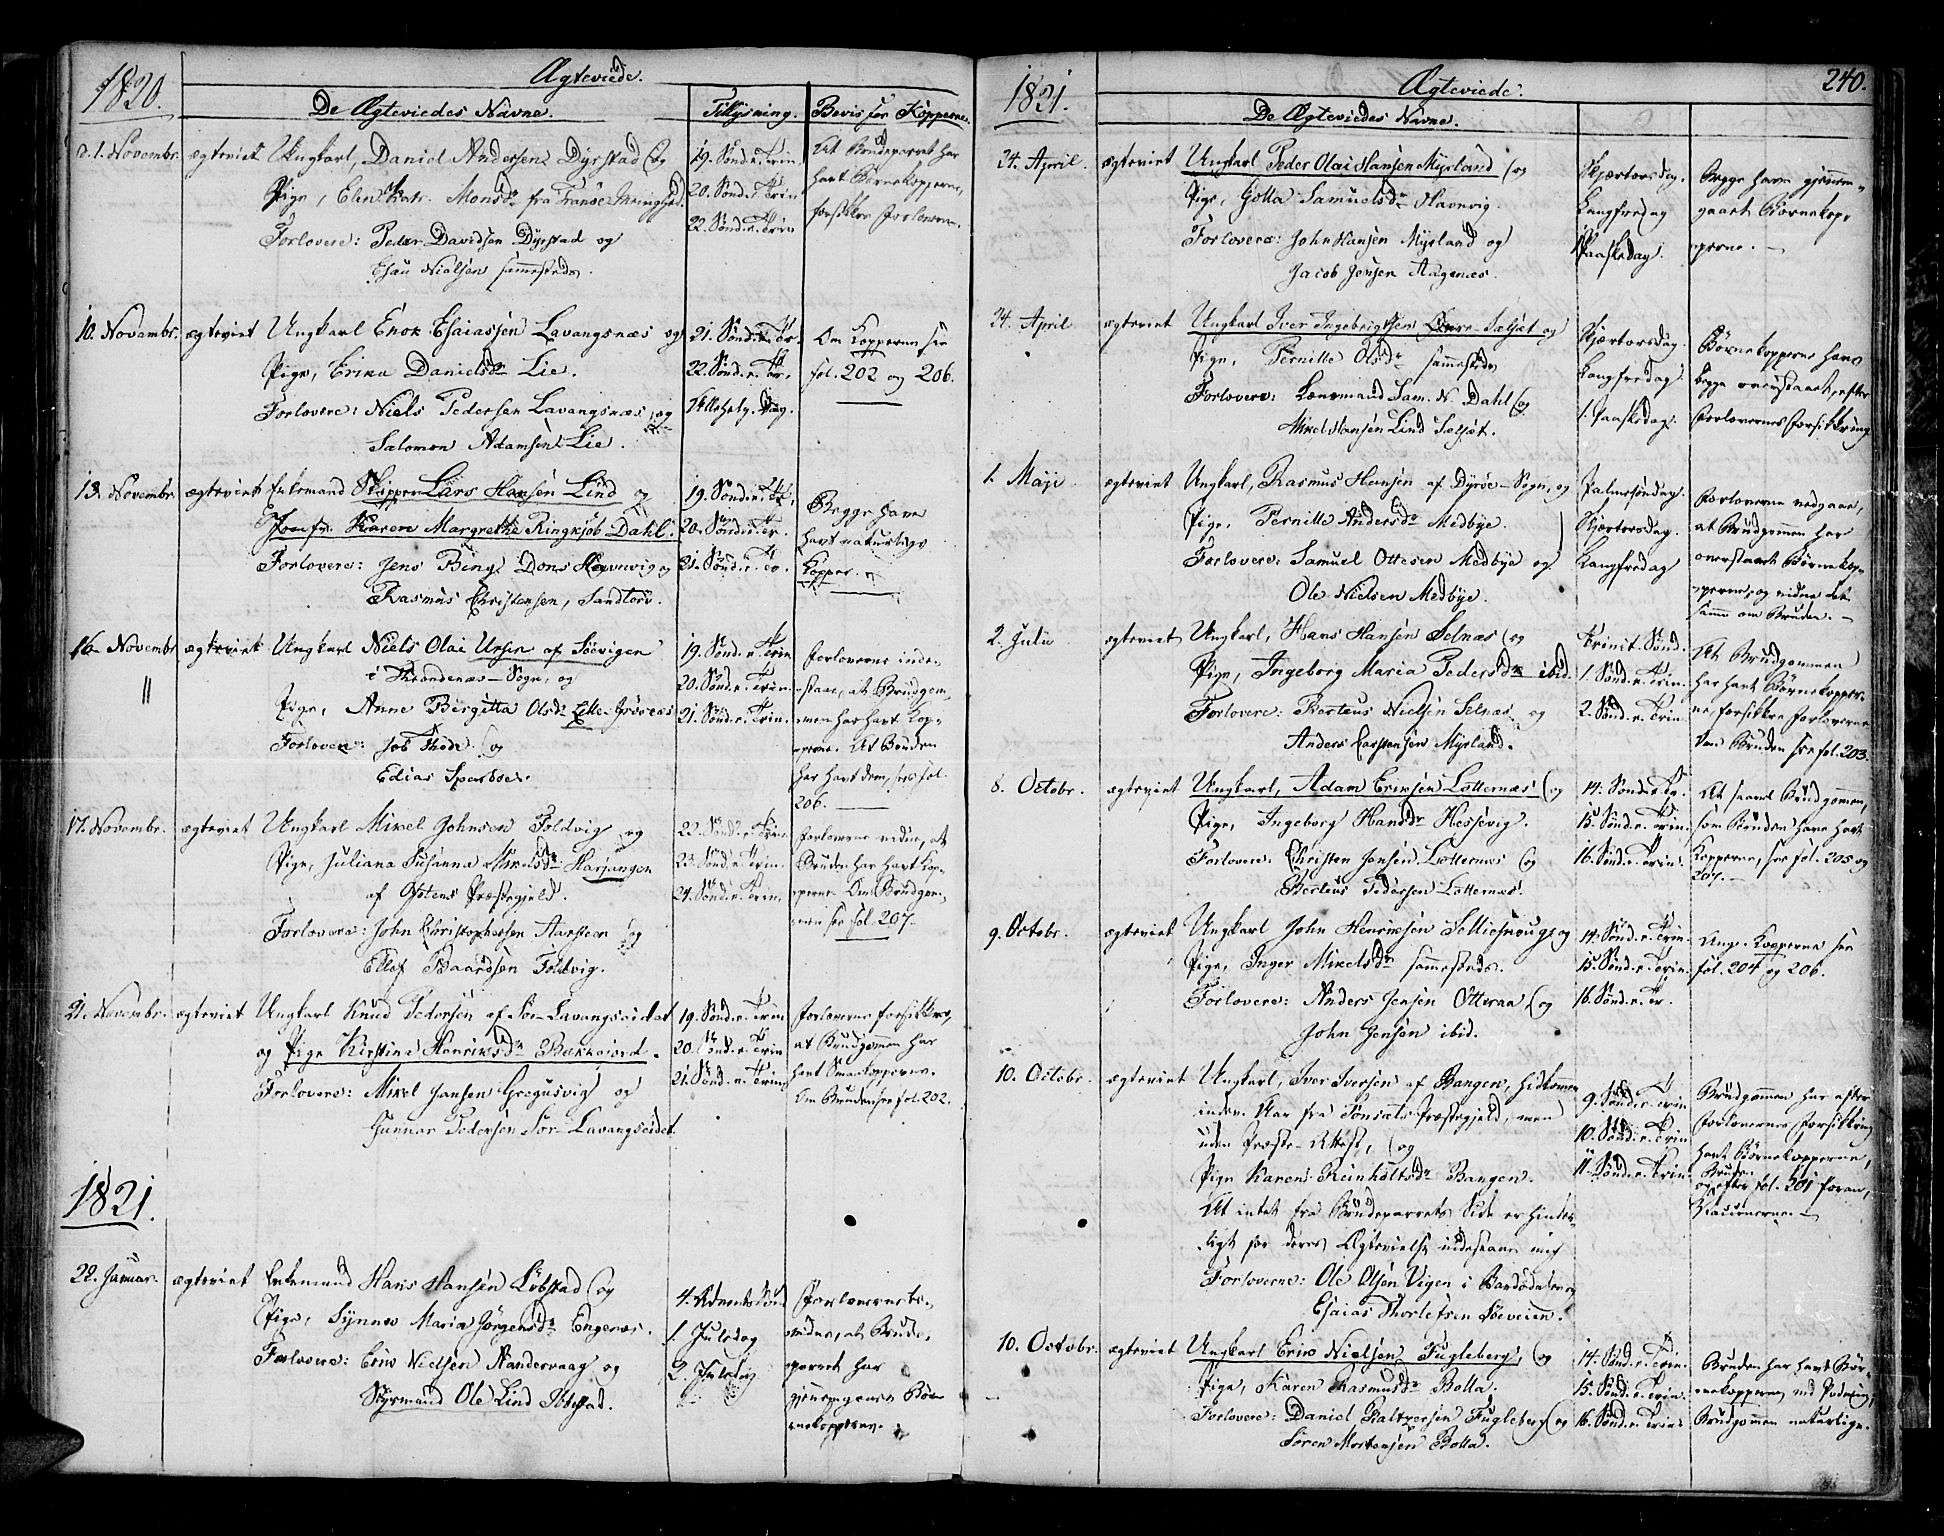 1820.
Ægteviede.
De Ægteviedes Navne. Tillysning. Bevis for Kopperne.
d. 1. Novembr. ægteviet Ungkarl, Daniel Andersen Dyrstad og
Pige, Elen Katr. Monsdr fra Tranøe Menighed.
Forlovere: Peder Davidsen Dyrstad og
Esau Nielsen sammesteds.
19. Sønd. e. Trin.
20. Sønd. e. Trin
22. Sønd. e. Trin
At Brudeparret har
havt Børnekopperne,
forsikkre Forloverne.
10. Novembr. ægteviet Ungkarl Enok Esaiassen Lavangsnæs og
Pige, Erika Danielsdr Lie.
Forlovere: Niels Pedersen Lavangsnæs og
Salomon Adamsen Lie.
21. Sønd. e. Tr.
22. Sønd. e. Tr.
Allehelg. Dag.
Om Kopperne see
fol. 202 og 206.
13. Novembr. ægteviet Enkemand Skipper Lars Hansen Lind og
Jomfr. Karen Margrethe Ringkjøb Dahl.
Forlovere: Jens Bing Dons Havnvig og
Rasmus Christensen, Sandtorv.
19. Sønd. e. Tr.
20. Sønd. e. Tr.
21. Sønd. e. Tr.
Begge have
havt naturlige
Kopper.
16. Novembr ægteviet Ungkarl Niels Olai Ursin af Søevigen
i Throndenæs-Sogn, og
Pige, Anne Birgitta Olsdr Lille-Grøvnæs
Forlovere: Job Thode og
Edias Sparboe.
19. Sønd. e. Trin
20. Sønd. e. Trin.
21. Sønd. e. Trin.
Forloverne inde-
staae, at Brudgom-
men har havt Kop-
perne. At Bruden
har havt dem, sees fol.
206.
17. Novembr. ægteviet Ungkarl Mikel Johnsen Foldvig og
Pige, Juliana Susanna Mikelsdr Harjangen
af Ofotens Præstegjeld.
Forlovere: John Christophersen Aarsteen og
Ellef Baardsen Foldvig.
22. Sønd. e. Trin.
23. Sønd. e. Trin.
24. Sønd. e. Trin.
Forloverne vidne, at
Bruden har havt Kop-
perne. Om Brudgom-
men see fol. 207.
21. Novembr. ægteviet Ungkarl Knud Pedersen af Sør-Lavangseidet
og Pige Kirstina Henriksdr Bakkejord.
Forlovere: Mikel Jansen Gregusvig og
Gunnar Pedersen Sør-Lavangseidet.
19. Sønd. e. Trin
20. Sønd. e. Trin
21. Sønd. e. Trin
Forloverne forsikkre,
at Brudgommen har
havt Smaakopperne.
Om Bruden see fol. 202.
1821.
22. Januar. ægteviet Enkemand Hans Hansen Løbstad og
Pige, Synnev Maria Jørgensdr Engenæs.
Forlovere: Erik Nielsen Aandervaag og
Styrmand Ole Lind Ibbestad.
4. Advents Sønd
1. Juledag
2. Juledag
at Brude-
parret har
Børnekopperne.
1821.
Ægteviede.
240.
De Ægteviedes Navne.
24. April ægteviet Ungkarl Peder Olai Hansen Myrland og
Pige, Golla Samuelsdr Havnvig.
Forlovere: John Hansen Myrland og
Jacob Jensen Aagenæs.
Skjærtorsdag.
Langfredag
1 Paaskedag.
Begge have gjennem-
gaaet Børnekop-
perne.
24. April ægteviet Ungkarl Iver Ingebrigtsen Sælset og
Pige, Pernille Olsdr sammesteds
Forlovere: Lænsmand Sam. N. Dahl og
Mikel Hansen Lind Sælset.
Skjærtorsdag.
Langfredag
1. Paaskedag.
Børnekopperne have
begge overstaaet, efter
Forlovernes forsikkring.
1. Maji ægteviet Ungkarl, Rasmus Hansen af Dyrøe-Sogn, og
Pige, Pernille Andersdr Medbye.
Forlovere: Samuel Ottesen Medbye og
Ole Nielsen Medbye.
Palmesøndag.
Skjærtorsdag.
Langfredag
Forloverne vedgaae,
at Brudgommen har
overstaaet Børnekop-
perne, og vidne det
samme om Bruden.
2. Julii ægteviet Ungkarl, Hans Hansen Selnæs og
Pige, Ingeborg Maria Pedersdr ibid.
Forlovere: Berteus Nielsen Selnæs og
Anders Carstensen Myrland.
Trinit. Sønd.
1. Sønd. e. Trin.
2. Sønd. e. Trin.
At Brudgommen
har havt Børnekopper-
ne forsikkre Forloverne
Om Bruden see fol. 203.
8. Octobr. ægteviet Ungkarl, Adam Eriksen Lotternæs og
Pige, Ingeborg Hansdr Hessevig.
Forlovere: Christen Jensen Lotternæs og
Berteus Pedersen Lotternæs.
14. Sønd. e. Tr.
15. Sønd. e. Trin.
16. Sønd. e. Trin.
At saavel Brudgommen,
som Bruden have havt
Kopperne, see fol. 205 og
207.
9. Octobr. ægteviet Ungkarl John Henriksen Selliesroug og
Pige, Inger Mikelsdr sammesteds.
Forlovere: Anders Jensen Otteraa og
John Jensen ibid.
14. Sønd. e. Trin.
15. Sønd. e. Trin.
16. Sønd. e. Tr.
Ang. Kopperne see
fol. 204 og 206.
10. Octobr. ægteviet Ungkarl, Iver Iversen af Bangen, hidkommen
inden Aar fra Tønsæts Præstegjeld, men
uden Præste-Attest, og
Pige Karen Reinholtsdr Bangen.
At intet fra Brudeparrets Side er hinder-
ligt for deres Ægtevielse indestaae mig
Forloverne: Ole Olsen Vigen i Bardødalen og
Esaias Thorlefsen Søeveien.
9. Sønd. e. Trin
10. Sønd. e. Trin.
11. Sønd. e. Trin.
Brudgommen har efter
Forlovernes Forsikkring
havt Børnekopperne,
Bruden
og efter fol. 201 foran,
Vaccinerne.
10. Octobr. ægteviet Ungkarl Erik Nielsen Fugleberg, og
Pige, Karen Rasmusdr Bolla.
Forlovere: Daniel Baltzersen Fugleberg og
Søren Mortensen Bolla.
14. Sønd. e. Trin.
15. Sønd. e. Trin.
16. Sønd. e. Trin.
Bruden har havt Bør-
nekopperne ved Podning,
Brudgommen naturlige.